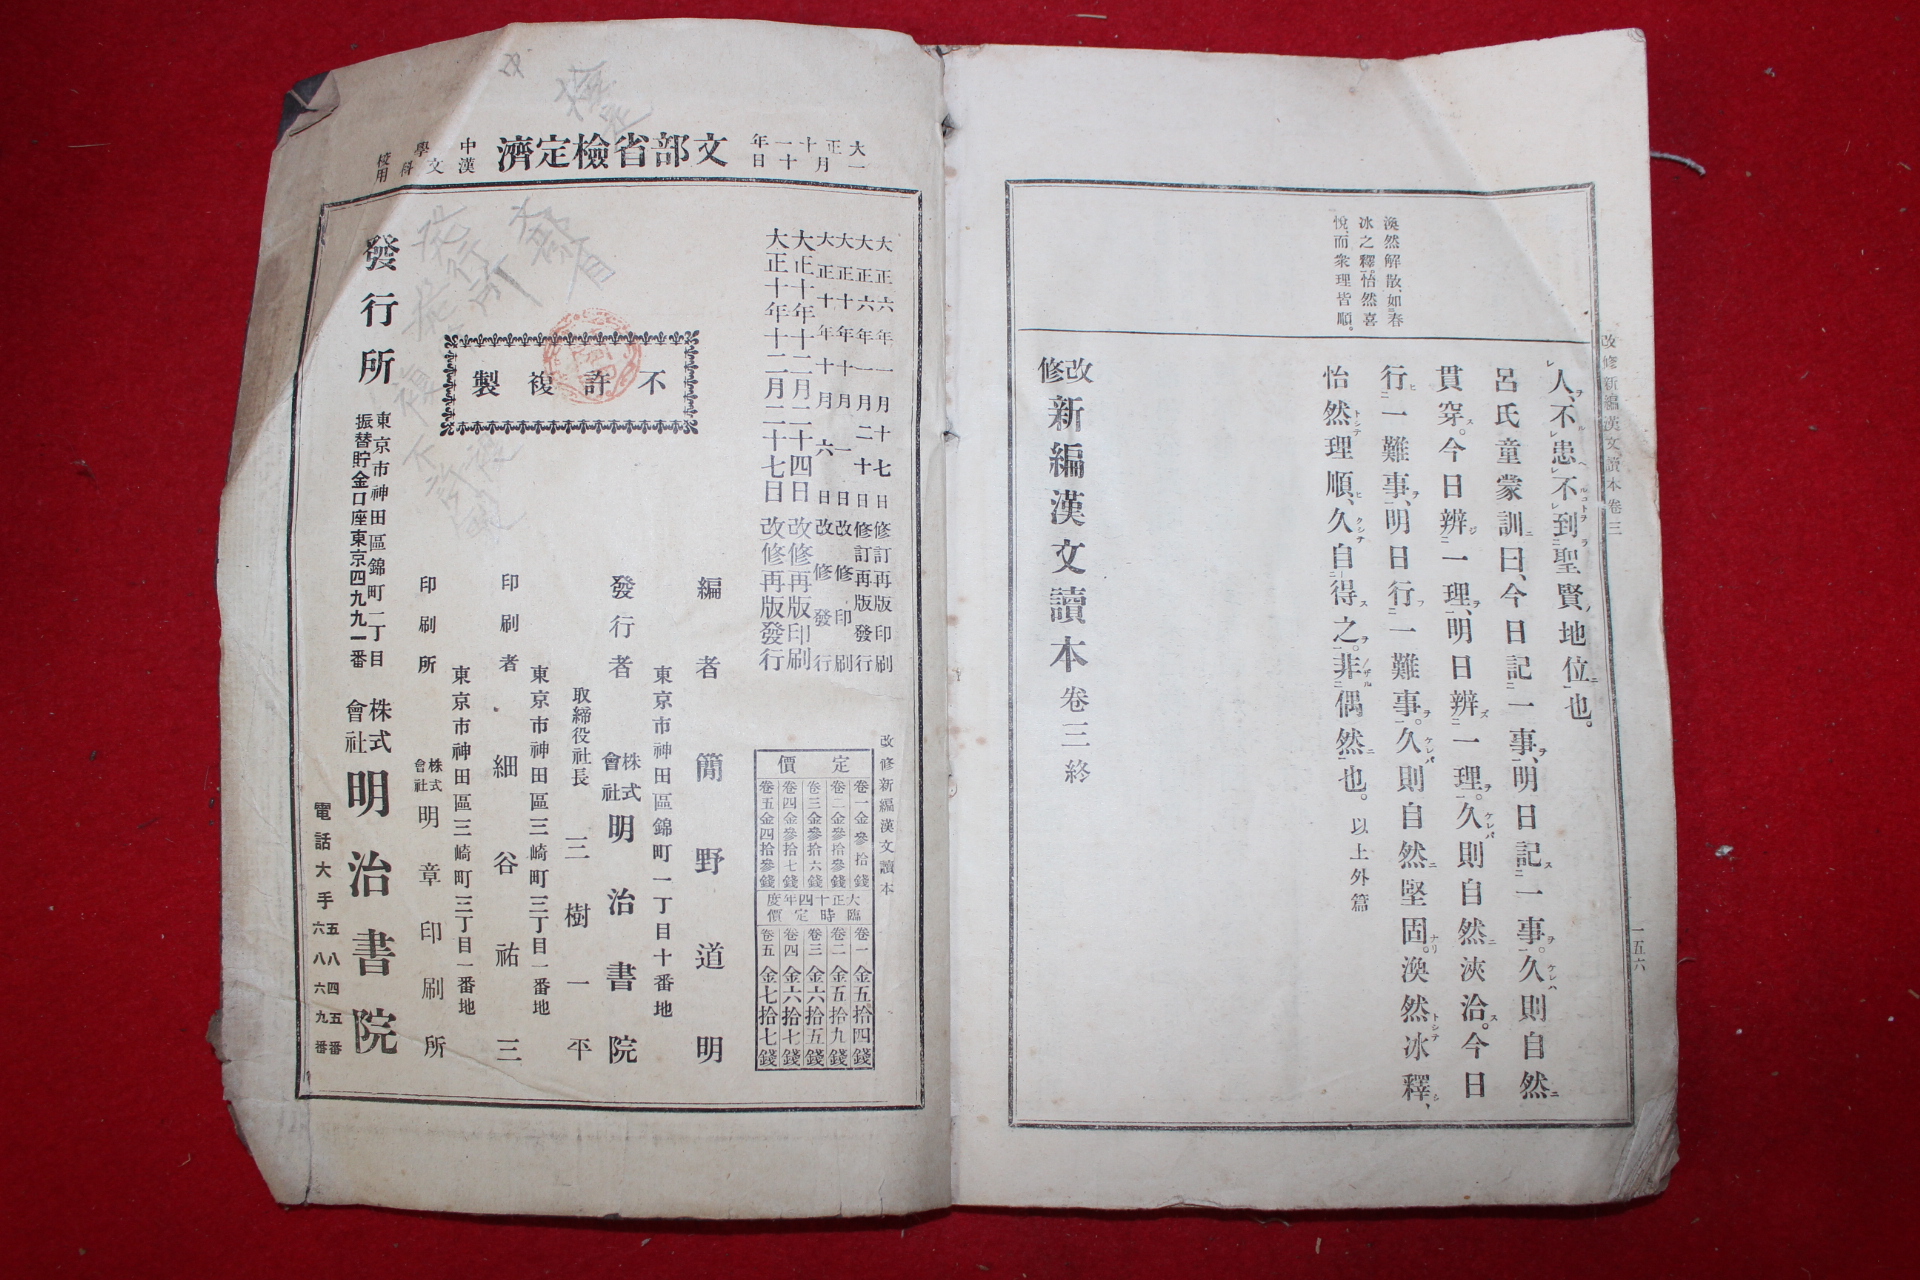 改修新編漢文讀本卷三
一五六
渙然解散、如春
冰之釋。怡然喜
悅、而衆理皆順。
人、不患不到聖賢地位也。
呂氏童蒙訓曰、今日記一事、明日記一事。久則自然
貫穿。今日辨一理、明日辨一理。久則自然浹洽。今日
行一難事、明日行一難事。久則自然堅固。渙然冰釋、
怡然理順、久自得之。非偶然也。以上外篇
改修新編漢文讀本卷三終
大正十一年
一月十日
文部省檢定濟
中學校
漢文科用
大正六年一月十七日修訂再版印刷
大正六年一月二十日修訂再版發行
大正十年十月一日改修印刷
大正十年十月六日改修發行
大正十年十二月二十四日改修再版印刷
大正十年十二月二十七日改修再版發行
不許複製
改修新編漢文讀本
定價
卷一金參拾錢
卷二金參拾參錢
卷三金參拾六錢
卷四金參拾七錢
卷五金四拾參錢
大正十四年度
臨時定價
卷一金五拾四錢
卷二金五拾九錢
卷三金六拾五錢
卷四金六拾七錢
卷五金七拾七錢
編者 簡野道明
東京市神田區錦町一丁目十番地
發行者 株式會社明治書院
取締役社長 三樹一平
東京市神田區三崎町三丁目一番地
印刷者 細谷祐三
東京市神田區三崎町三丁目一番地
印刷所 株式會社明章印刷所
發行所
東京市神田區錦町一丁目
振替貯金口座東京四九九一番
株式會社明治書院
電話大手五八四五番
六八六九番